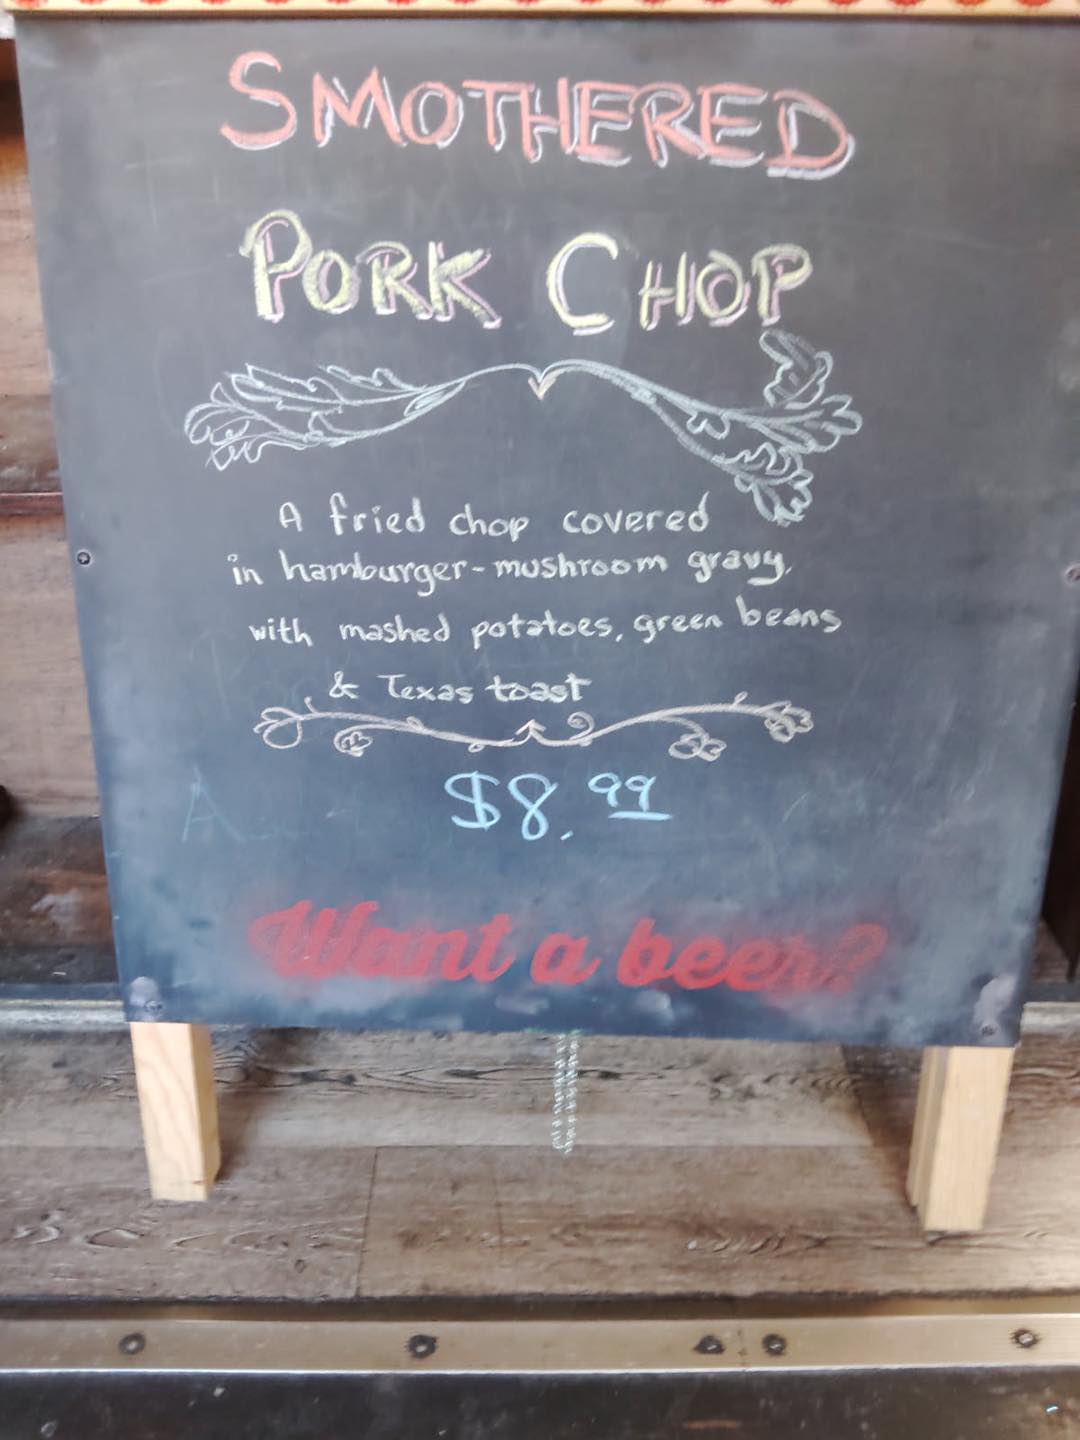 SMOTHERED
PORK CHOP
A fried chop covered
in hamburger-mushroom gravy,
with mashed potatoes, green beans
& Texas toast
$8.99
Want a beer?